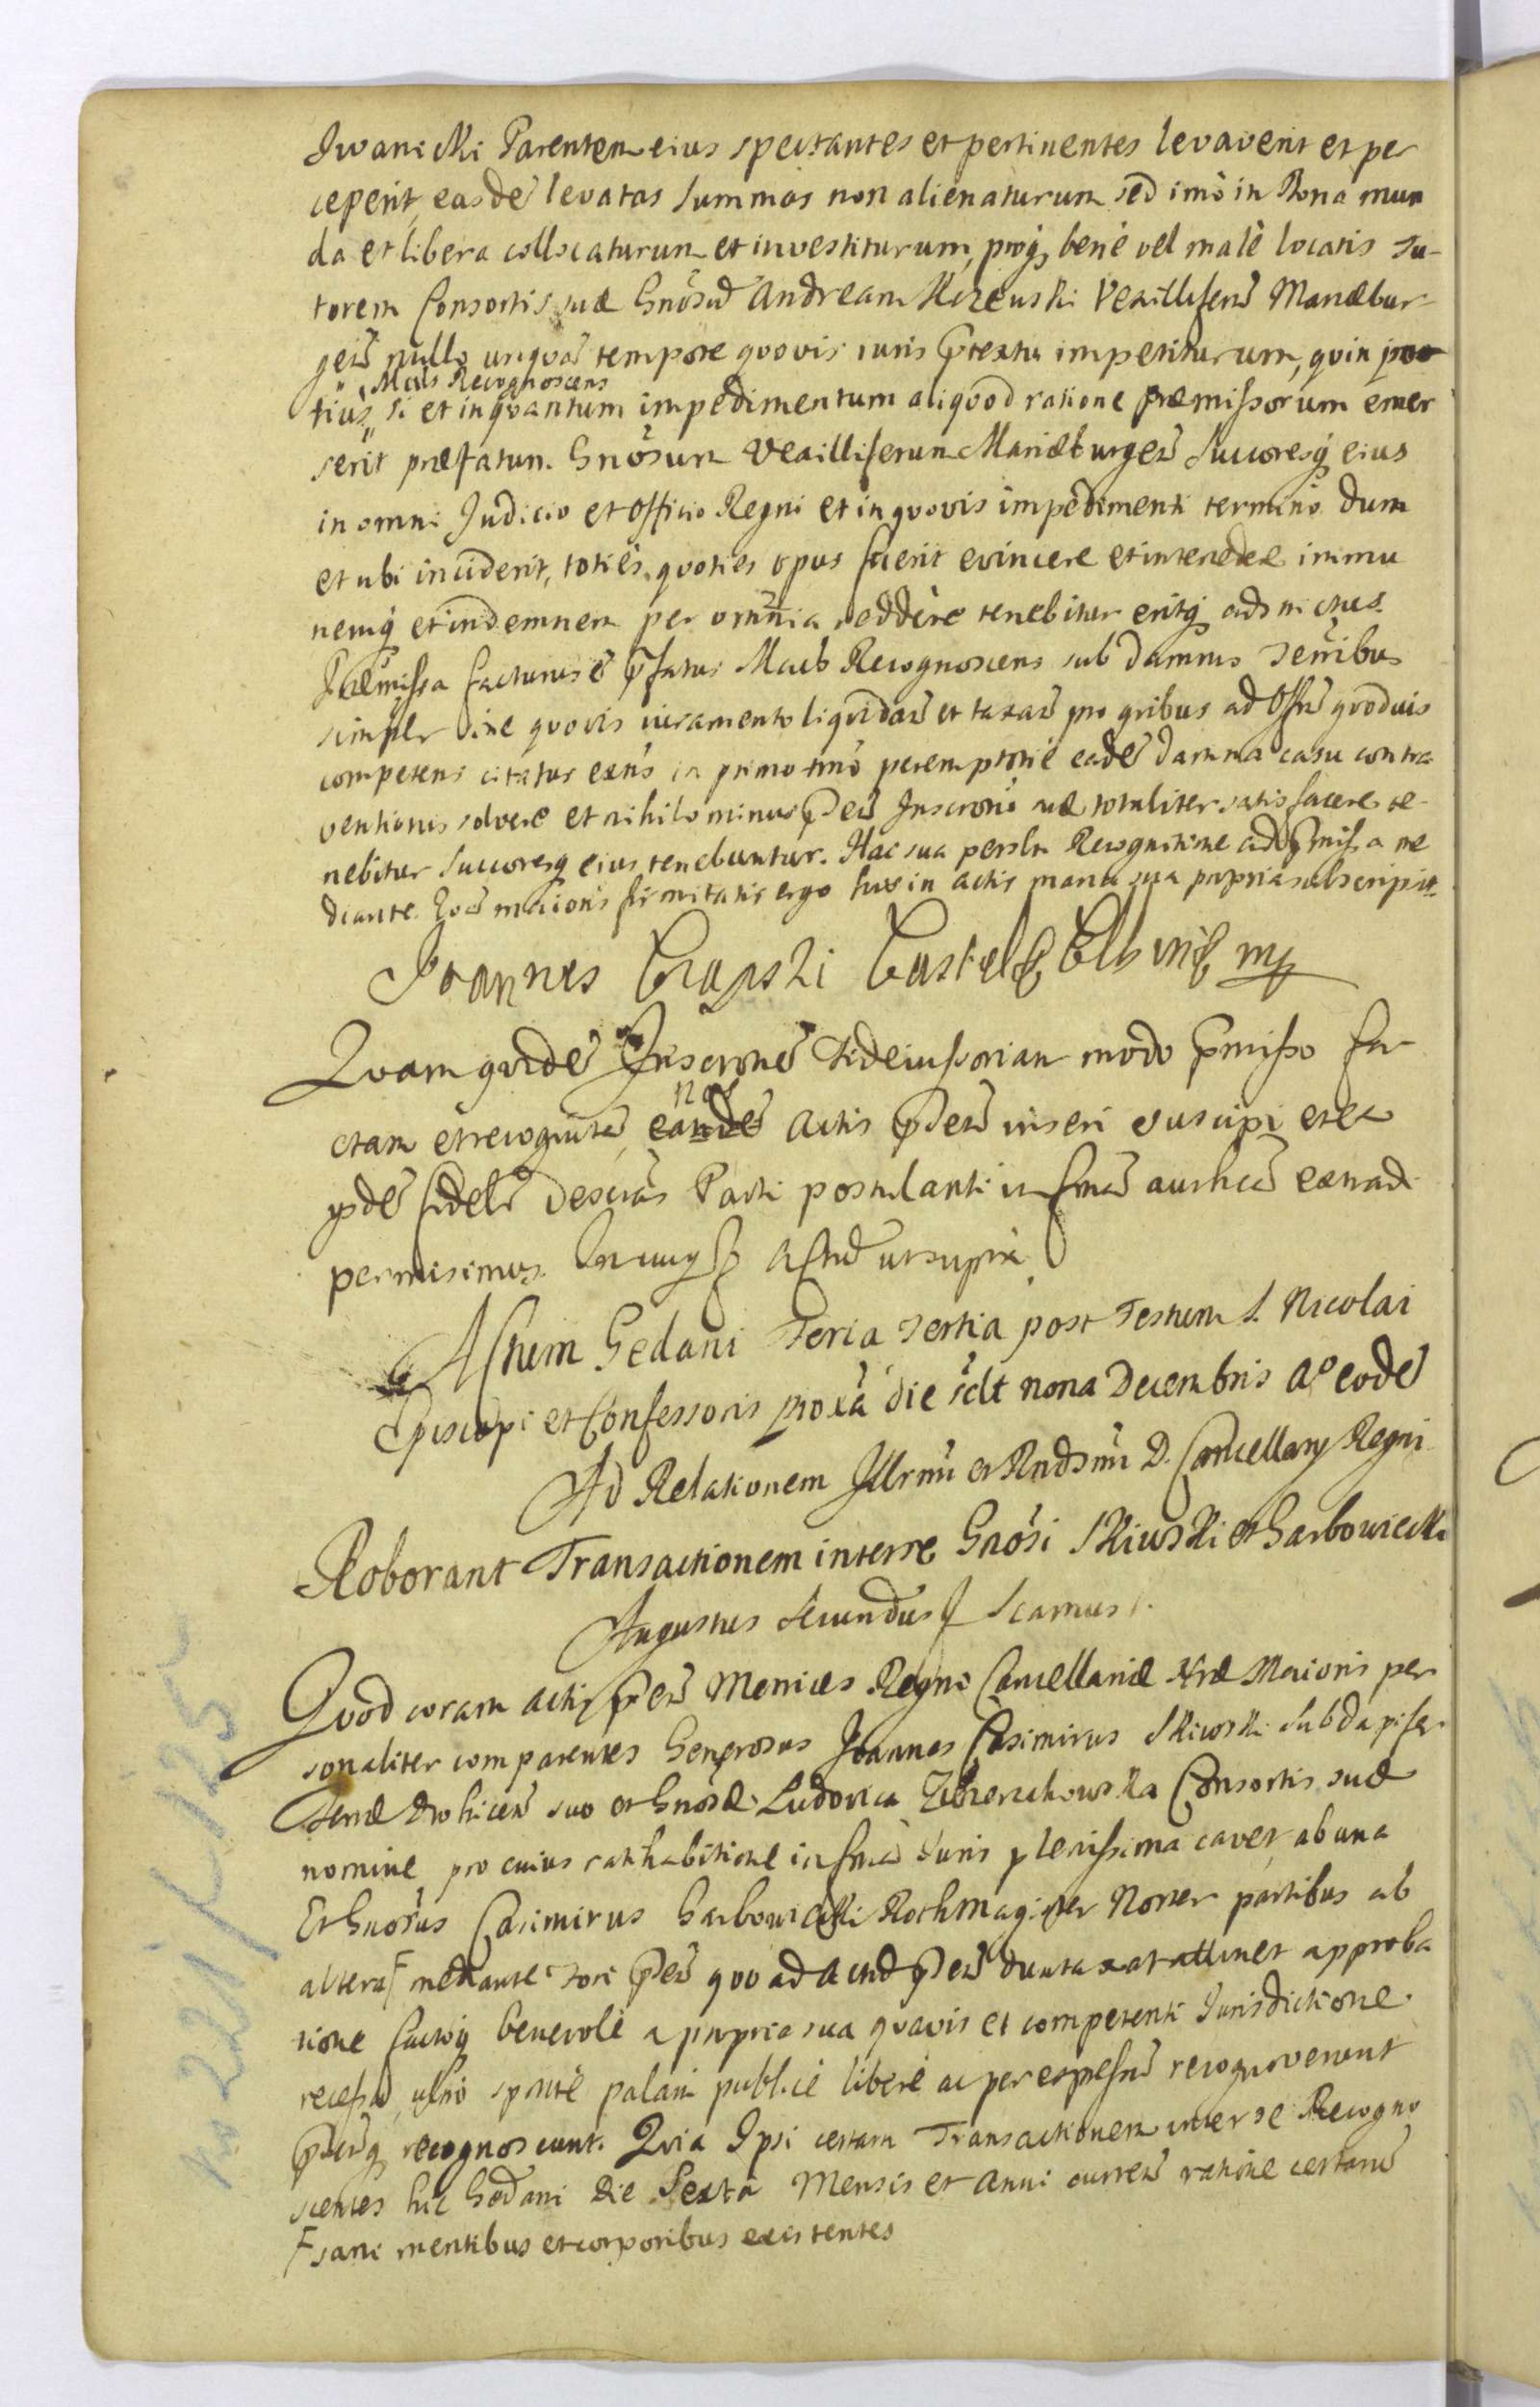 Iwanicki Parentem eius spectantes et pertinentes levaverit et per
ceperit, easdē levatas summas non alienaturum sed imò in Bona mun
da et libera collocaturum et investiturum, proq, benè vel malè locatis Tu-
torem Consortis suæ Gnōsū Andream Kczewski Vexilliferū Mariæbur-
geñ nullo unquā tempore quovis iuris p̄textu impetiturum, quin po
Mcūs Recognoscens
tius, si et inquantum impedimentum aliquod ratione præmissorum emer
serit præfatum Gnōsum Vexilliferum Mariæburgeñ Succoresq eius
in omni Judicio et Officio Regni et in quovis impedimenti termino dum
et ubi inciderit, toties, quoties opus fuerit evincere et intercedere immu
nemq et indemnem per omnia reddere tenebitur eritq adstrictus.
Præmissa facturus ē p̄fatus Mcūs Recognoscens sub damnis terribus
simplr sine quovis iuramento liquidañ et taxañ pro quibus ad Offm quodvis
competens citatus exñs in primo tmno peremptoriè eadē damna casu contra
ventionis solvere et nihilominus p̄señ Inscroni suæ totaliter satisfacere te-
nebitur Succoresq eius tenebuntur. Hac sua personli Recognitione ad p̄missa me
diante. Quā maioris firmitatis ergo hisce in actis manu sua propria subscripsit.
Joannes Czapski Castel Elbing mp
Quam quidē Inscronē Fideiussoriam modo p̄misso fa
nos
ctam et recognitā, eandē Actis p̄señ inseri suscipi et ex
ysdē fidelr descriās Parti postulanti in formā authcā extradi
permisimus. In cuius Actū ut supra
Actum Gedani Feria Tertia post Festum S. Nicolai
Episcopi et Confessoris proxa die sclt nona Decembris Ao eodē
Ad Relationem Illrmi et Rndsmi D. Cancellarij Regni
Roborant Transactionem inter se Gnōsi Skiwski et Garbowiecki
Augustus Secundus Scamus.
Quod coram Actis p̄señ Metrices Regni Cancellariæ Nræ Maioris per
sonaliter comparentes Generosus Joannes Casimirus Skiwski Subdapifer
Terræ Drohiceñ suo et Gnōsæ Ludovica Consortis suæ
nomine pro cuius ratihabitione in formā Iuris plenissima cavet, ab una
Et Gnōsus Casimirus Garbowiecki Rothmagister Noster partibus ab
altera F mediante Fori p̄señ quo ad Actū p̄señ duntaxat attinet approba
tione factoq benevolè a propria sua quavis et competenti Jurisdictione
recessu, ultro spontè palam publicè liberè ac per expressū recognoverunt
p̄señq recognoscunt. Quia Ipsi certam Transactionem inter se Recogno
scentes hic Gedani die Sexta Mensis et Anni curreñ ratione certarū
F sani mentibus et corporibus existentes